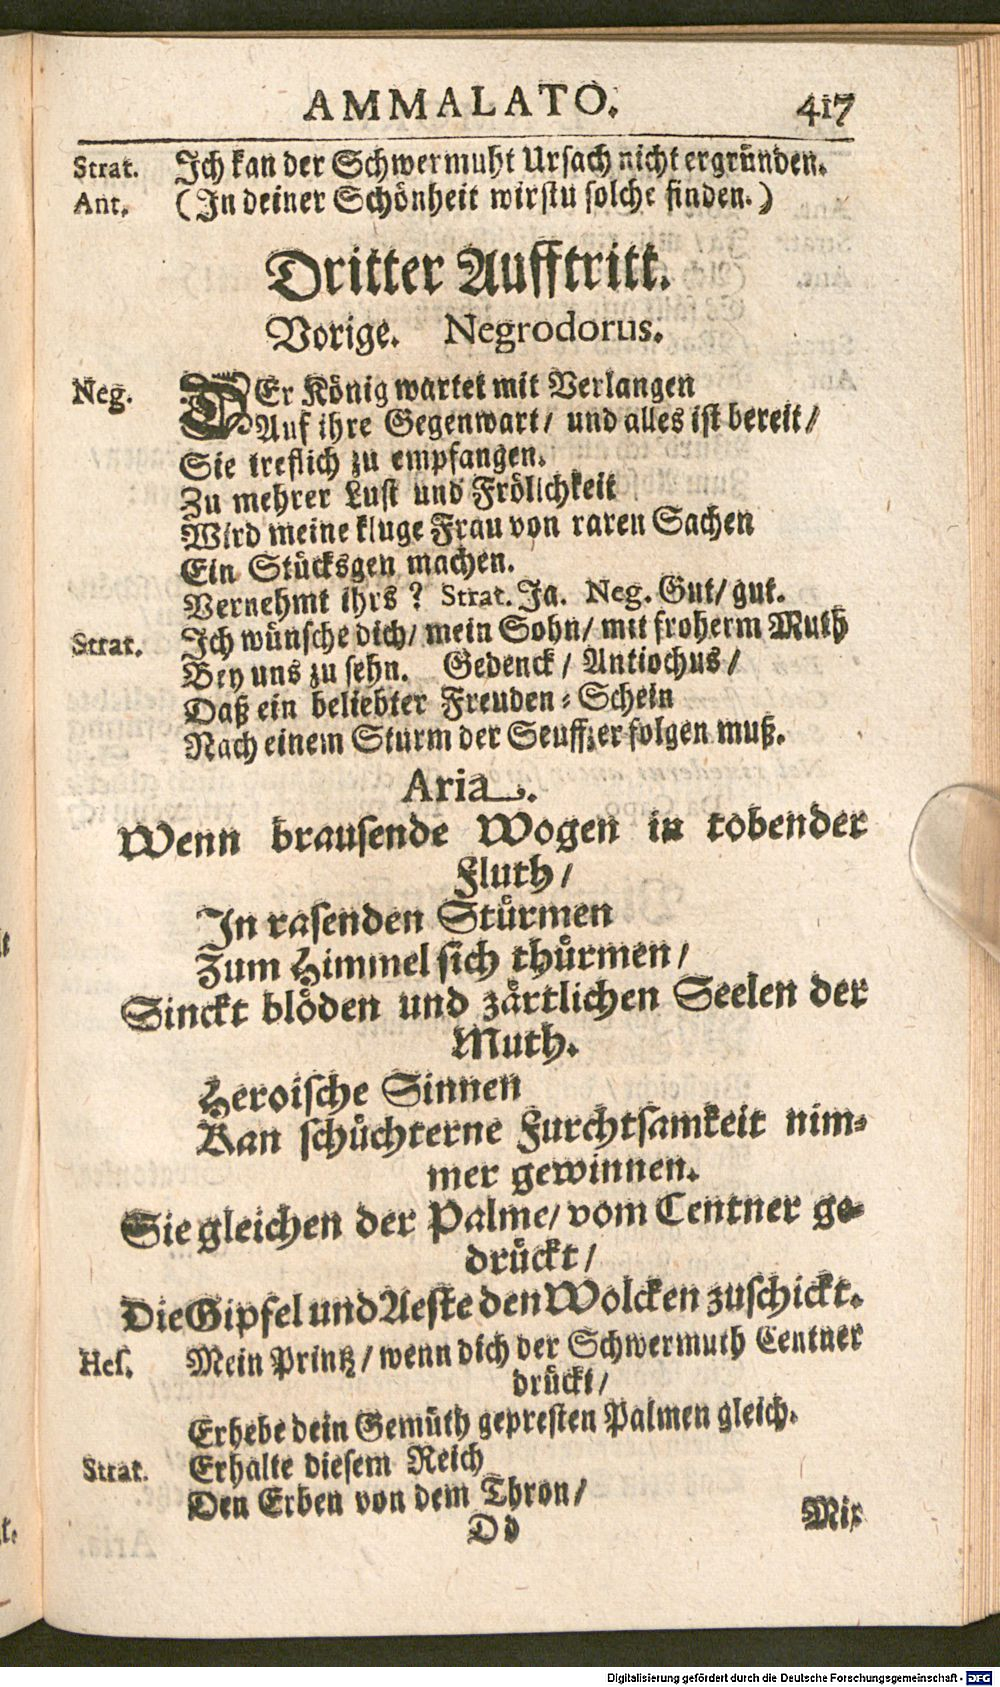 AMMALATO. 417
Strat. Ich kan der Schwermuht Ursach nicht ergründen.
Ant. (In deiner Schönheit wirstu solche finden.)
Dritter Aufftritt.
Vorige. Negrodorus.
Neg. DEr König wartet mit Verlangen
Auf ihre Gegenwart/ und alles ist bereit/
Sie treflich zu empfangen.
Zu mehrer Lust und Frölichkeit
Wird meine kluge Frau von raren Sachen
Ein Stücksgen machen.
Vernehmt ihrs? Strat. Ja. Neg. Gut/ gut.
Strat. Ich wünsche dich/ mein Sohn/ mit froherm Muth
Bey uns zu sehn. Gedenck/ Antiochus/
Daß ein beliebter Freuden-Schein
Nach einem Sturm der Seuffzer folgen muß.
Aria.
Wenn brausende Wogen in tobender
Fluth/
In rasenden Stürmen
Zum Himmel sich thürmen/
Sinckt blöden und zärtlichen Seelen der
Muth.
Heroische Sinnen
Kan schüchterne Furchtsamkeit nim-
mer gewinnen.
Sie gleichen der Palme/ vom Centner ge-
drückt/
Die Gipfel und Aeste den Wolcken zuschickt.
Hes. Mein Printz/ wenn dich der Schwermuth Centner
drückt/
Erhebe dein Gemüth gepresten Palmen gleich.
Strat. Erhalte diesem Reich
Den Erben von dem Thron/
Dd Mir
Digitalisierung gefördert durch die Deutsche Forschungsgemeinschaft - DFG